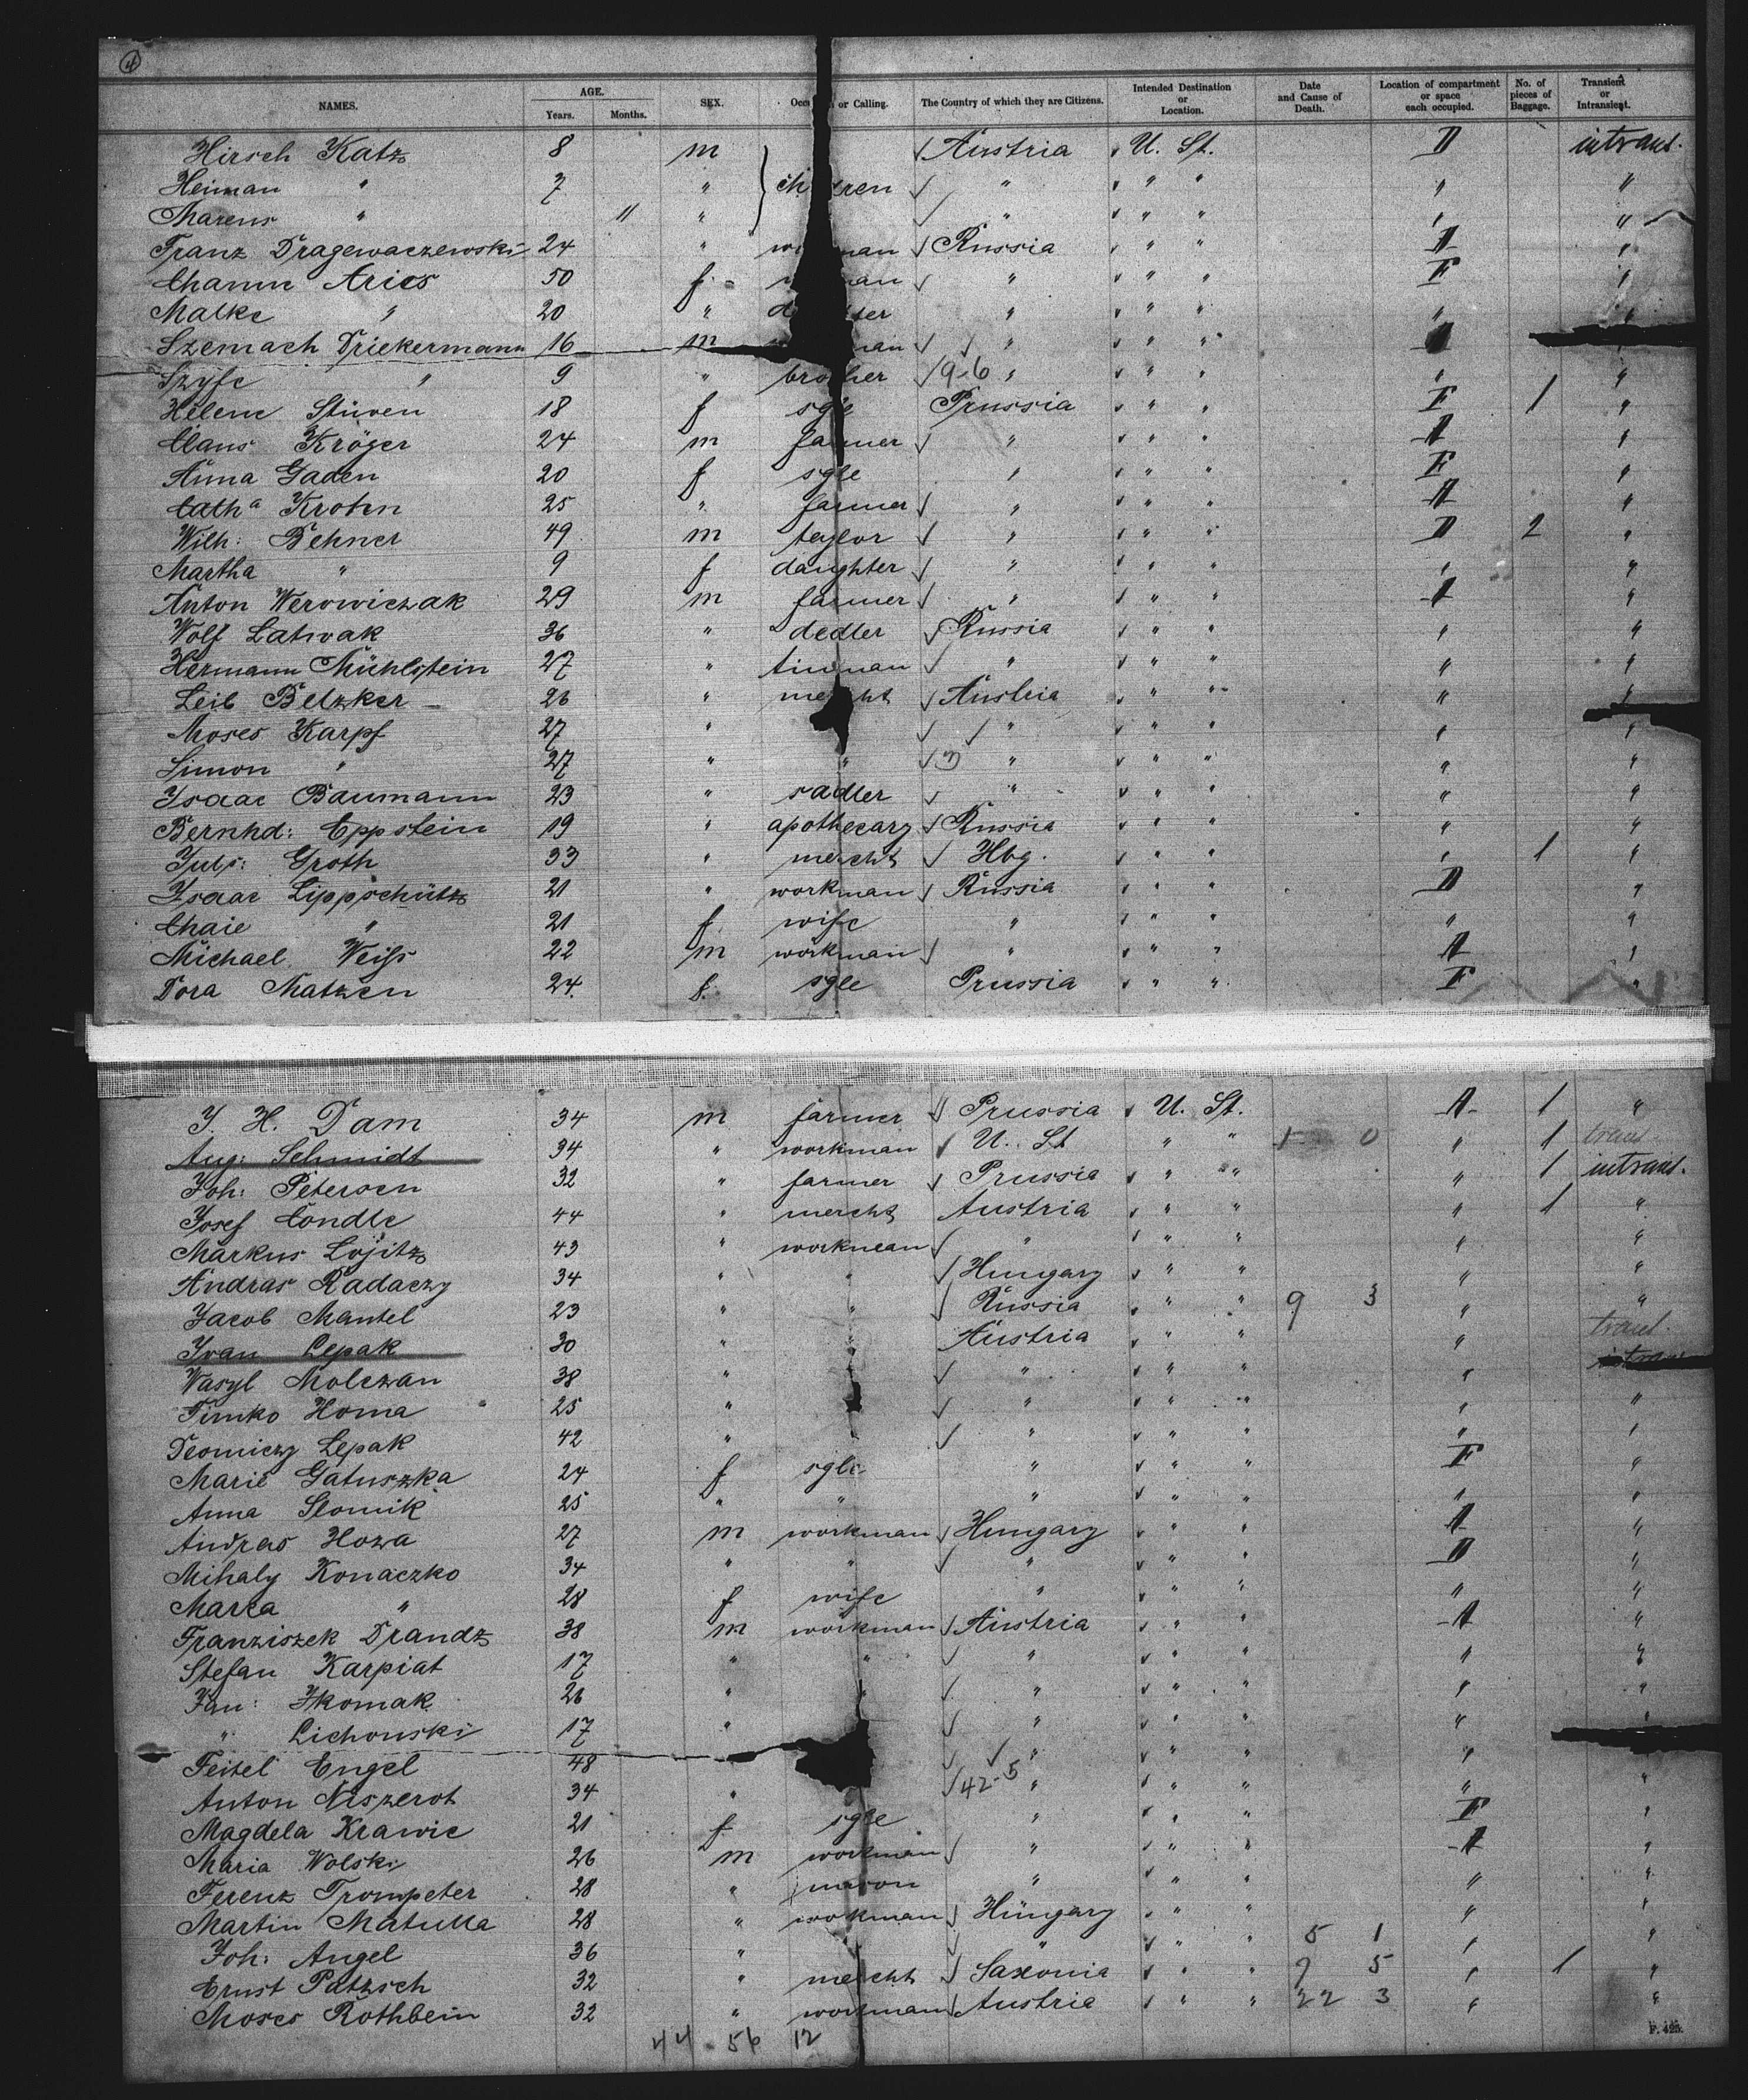 4
NAMES. AGE. Years. Months. SEX. or Calling. The Country of which they are Citizens. Intended Destination or Location. Date and Cause of Death. Location of compartment or space each occupied. No. of pieces of Baggage. Transient or Intransient.
Hirsch Katz 8 m Austria U. St. D intrant.
Heiman " 7 " children " " " " "
Marens " 11 " " " " " "
Franz Dragewaczewski 24 " Russia " " A "
Channe Aries 50 f " " " F "
Malke " 20 " " " " "
Szemach Driekermann 16 m " " "
Szyfe " 9 " brother 9-6 " " " " "
Helene Stüven 18 f sgle Prussia " " F 1 "
Claus Kröger 24 m farmer " " " A "
Anna Gaden 20 f sgle " " " F "
Cath a Kroten 25 " farmer " " " A "
Wilh: Behner 49 m taylor " " " D 2 "
Martha " 9 f daughter " " " " "
Anton Werowiczak 29 m farmer " " " A "
Wolf Latwak 36 " dedler Russia " " " "
Hermann Mühlstein 27 " tinman " " " " "
Leib Betzker 26 " mercht Austria " " "
Moses Karpf 27 " " " " " "
Simon " 27 " " " " " " "
Isaac Baumann 23 " sadler " " " " "
Bernhd: Eppstein 19 " apothecary Russia " " " "
Juls: Groth 33 " mercht Hbg. " " " 1 "
Isaac Lippschütz 21 " workman Russia " " D "
Chaie " 21 f wife " " " " "
Michael Weiss 22 m workman " " " A "
Dora Matzen 24. f. sgle Prussia " " F "
J. H. Dam 34 m farmer Prussia U. St. A 1 "
Aug: Schmidt 34 " workman U. St " " " 1 trant.
Joh: Petersen 32 " farmer Prussia " " " 1 intrant.
Josef Condle 44 " mercht Austria " " " 1 "
Markus Lojitz 43 " workman " " " " "
Andras Radaczy 34 " " Hungary " " " "
Jacob Mantel 23 " " Russia " " 9 3 " "
Ivan Lepak 30 " Austria " " " trant.
Wasyl Molczan 38 " " " " "
Timko Homa 25 " " " " " "
Deomiczy Lepak 42 " " " " " "
Marie Gatuszka 24 f sgle " " " F "
Anna Slomik 25 " " " " " " "
Andras Howa 27 m workman Hungary " " A "
Mihaly Konaczko 34 " " " " " D "
Marca " 28 f wife " " " " "
Franziszek Drandz 38 m workman Austria " " A "
Stefan Karpiat 17 " " " " " " "
Jan: Ikomak 26 " " " " " " "
" Lichonski 17 " " " " " "
Feitel Engel 48 " " " "
Anton Niszerot 34 " 42-5 " " " " "
Magdela Krawic 21 f sgle " " " F "
Maria Wolski 26 m workman " " " A "
Ferenz Trompeter 28 " mason " " " " "
Martin Matulla 28 " workman Hungary " " " "
Joh: Angel 36 " " " " 5 1 " "
Ernst Patzsch 32 " mercht Saxonia " " 9 5 " 1 "
Moses Rothbein 32 " workman Austria " " 22 3 " "
44 - 56 12
F. 425.